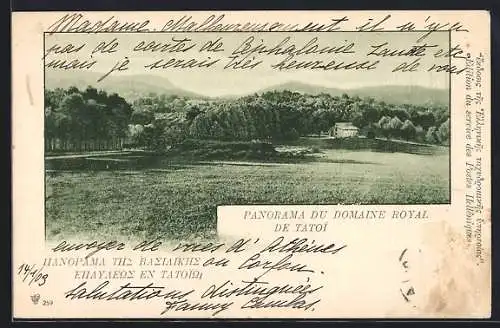 Madame, Malheureusement il n'y a
pas de cartes de Céphalonie Zante etc
mais je serais très heureuse de vous
PANORAMA DU DOMAINE ROYAL
DE TATOÏ
envoyer de vues d'Athènes
ou Corfou.
ΠΑΝΟΡΑΜΑ ΤΗΣ ΒΑΣΙΛΙΚΗΣ
ΕΠΑΥΛΕΩΣ ΕΝ ΤΑΤΟΪΩ
14/1/03
Salutations distinguées
Fanny
259
"Ἔκδοσις τῆς Ἑλληνικῆς ταχυδρομικῆς ὑπηρεσίας"
"Edition du service des Postes Helléniques"